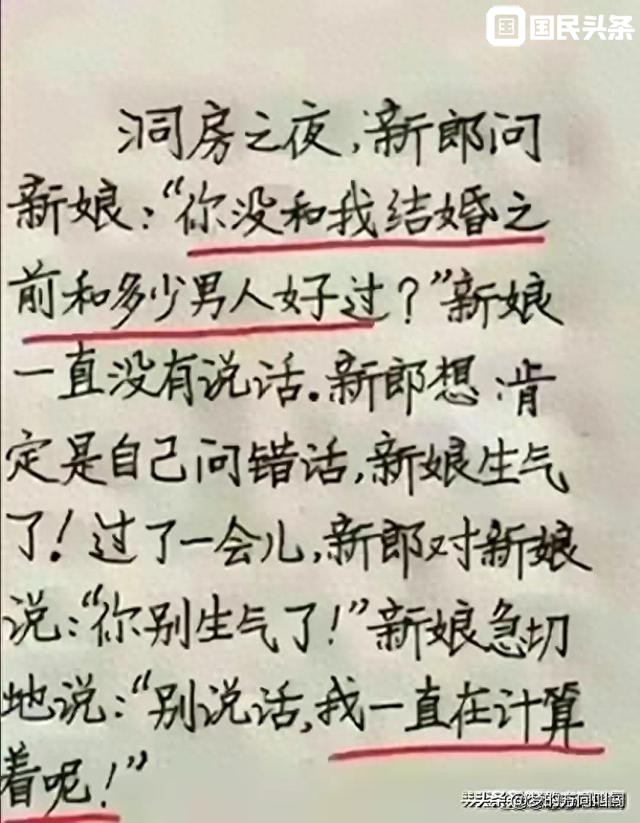 国民头条
洞房之夜,新郎问
新娘:“你没和我结婚之
前和多少男人好过?”新娘
一直没有说话.新郎想:肯
定是自己问错话,新娘生气
了!过了一会儿,新郎对新娘
说:“你别生气了!”新娘急切
地说:“别说话,我一直在计算
着呢!”
头条 @梦的方向叫闯